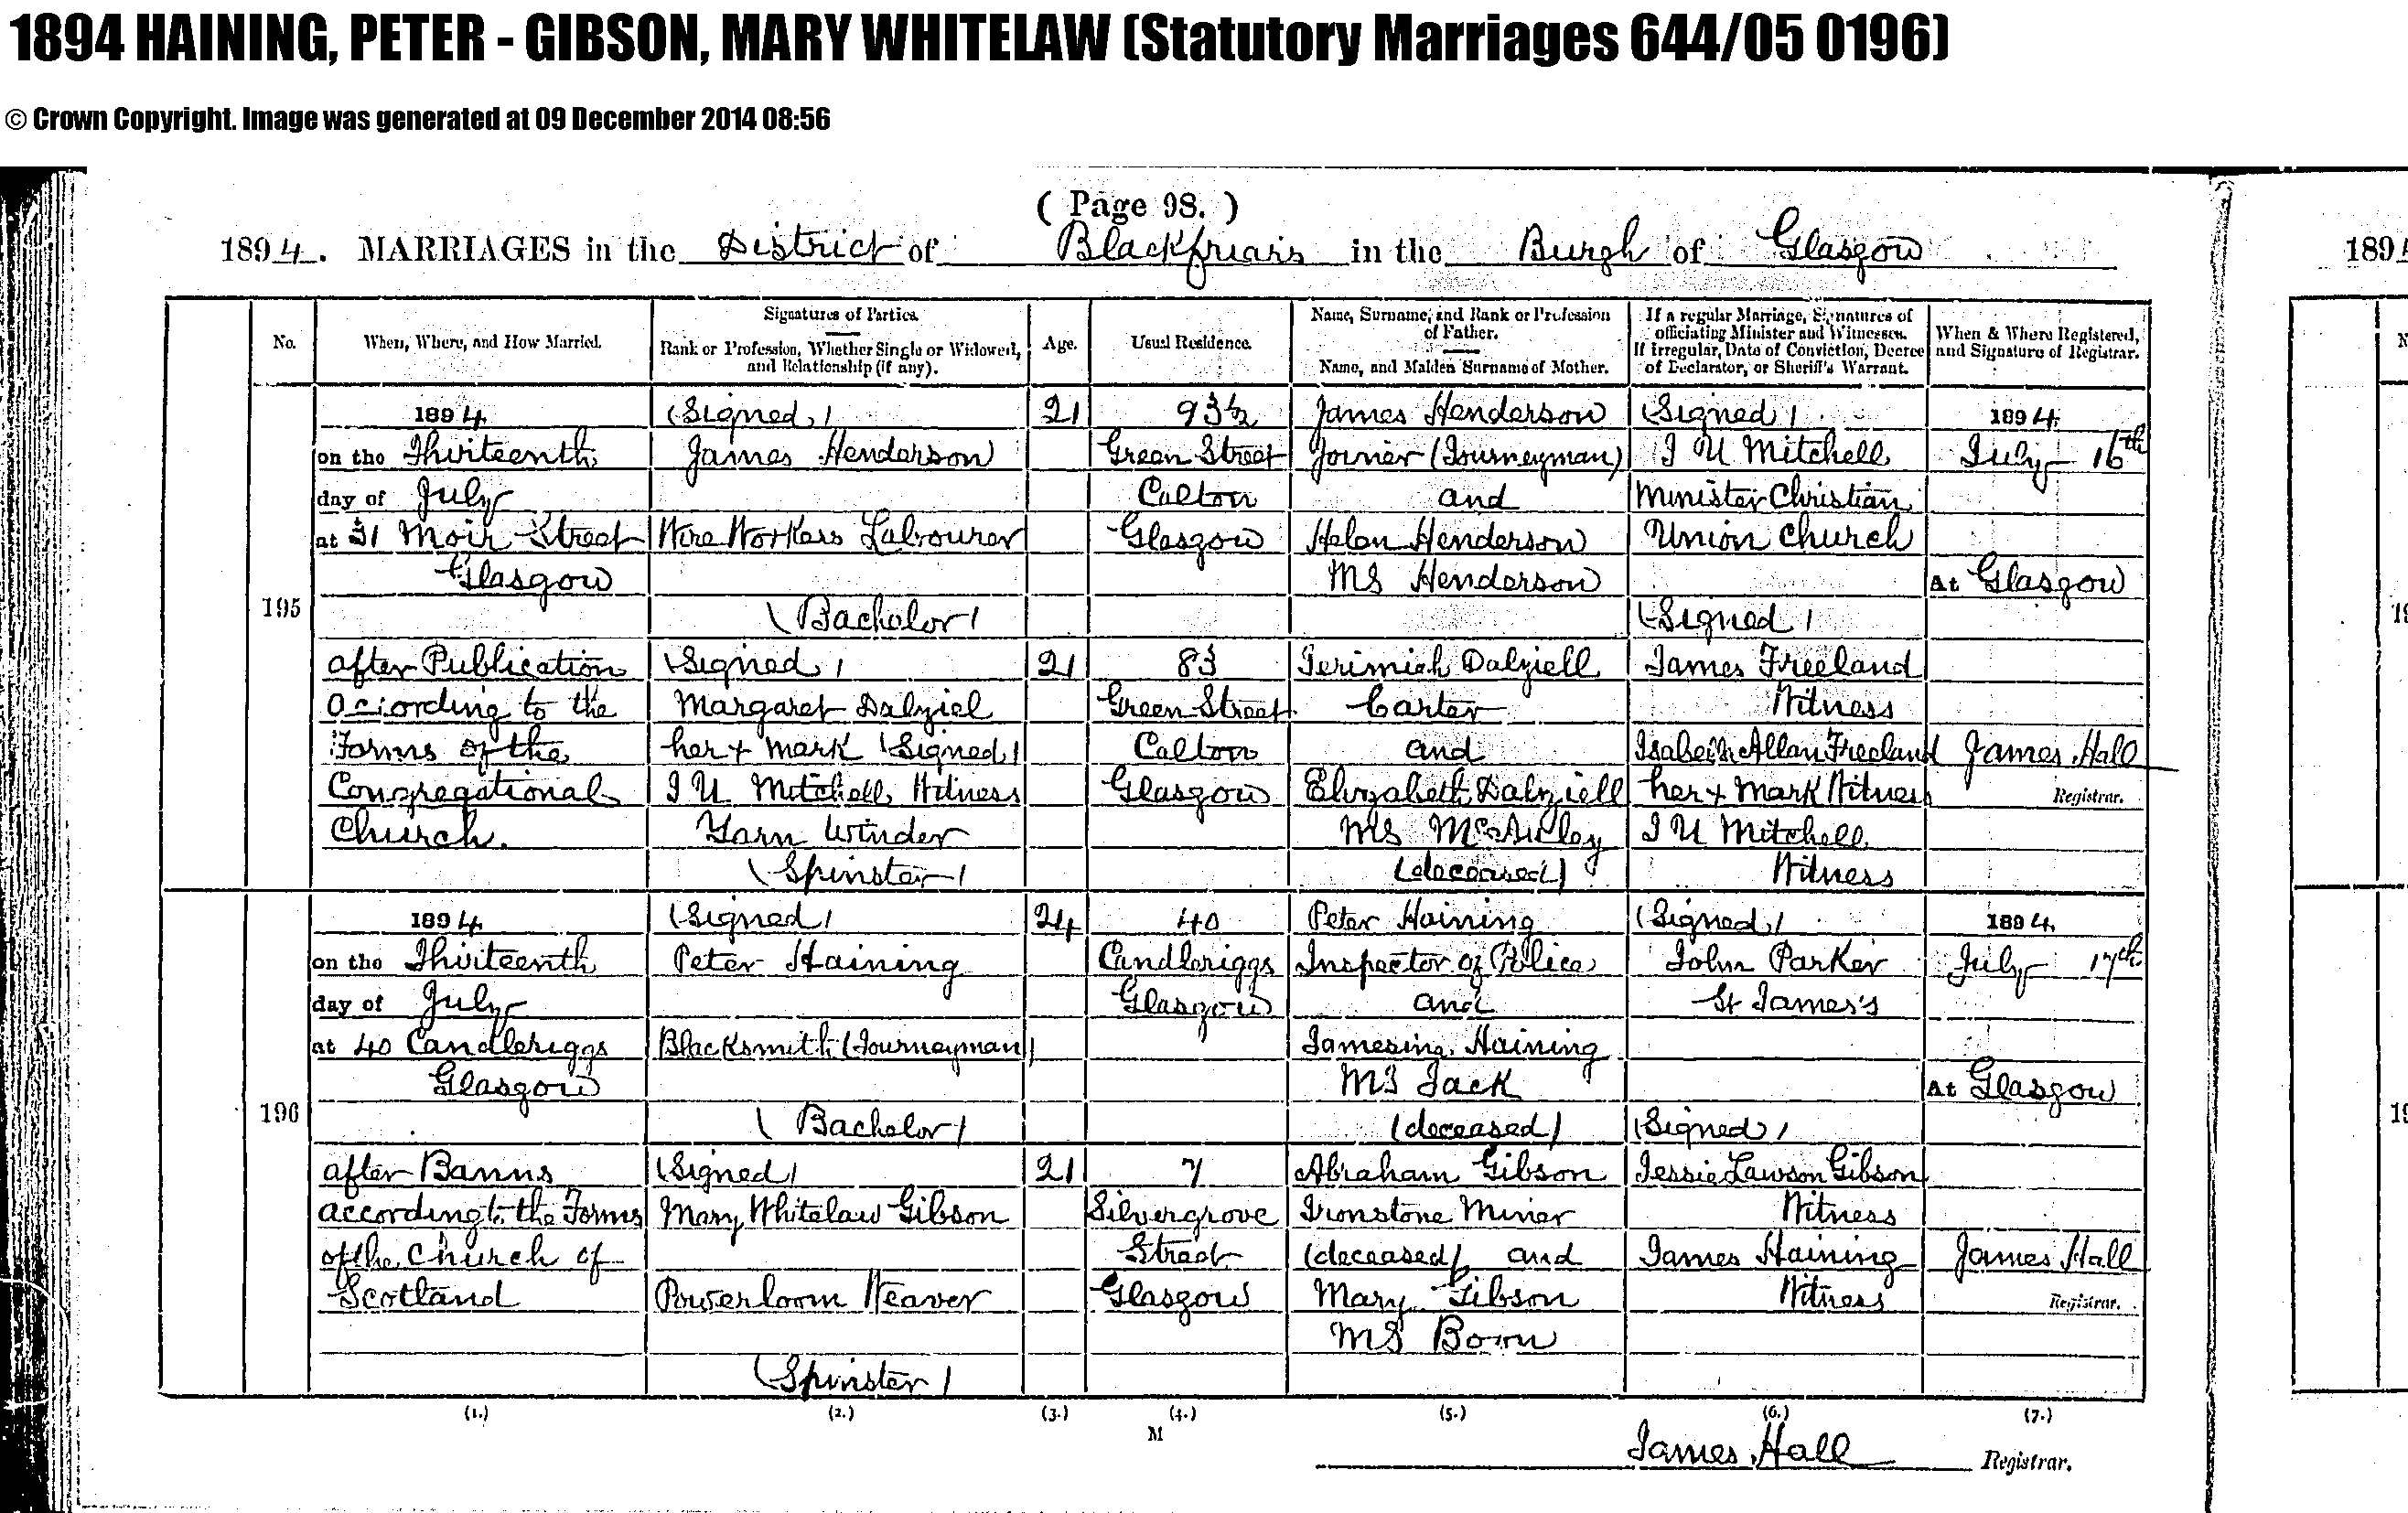 1894 HAINING, PETER - GIBSON, MARY WHITELAW (Statutory Marriages 644/05 0196)
© Crown Copyright. Image was generated at 09 December 2014 08:56
( Page 98. )
1894. MARRIAGES in the District of Blackfriars in the Burgh of Glasgow
189
No.
When, Where, and How Married.
Signatures of Parties.
Rank or Profession, Whether Single or Widowed,
and Relationship (if any).
Age.
Usual Residence.
Name, Surname, and Rank or Profession
of Father.
Name, and Maiden Surname of Mother.
If a regular Marriage, Signatures of
officiating Minister and Witnesses.
If irregular, Date of Conviction, Decree
of Declarator, or Sheriff's Warrant.
When & Where Registered,
and Signature of Registrar.
195
1894
on the Thirteenth
day of July
at 31 Moir Street
Glasgow
after Publication
according to the
Forms of the
Congregational
Church.
(Signed)
James Henderson
Wire Workers Labourer
(Bachelor)
(Signed)
Margaret Dalziel
her + mark (Signed)
I U Mitchell Witness
Yarn Winder
(Spinster)
21
21
93½
Green Street
Calton
Glasgow
83
Green Street
Calton
Glasgow
James Henderson
Joiner (Journeyman)
and
Helen Henderson
MS Henderson
Jerimiah Dalziell
Carter
and
Elizabeth Dalziell
MS McAuley
(deceased)
(Signed)
I U Mitchell
Minister Christian
Union Church
(Signed)
James Freeland
Witness
Isabella Allan Freeland
her + mark Witness
I U Mitchell
Witness
1894
July 16th
At Glasgow
James Hall
Registrar.
196
1894
on the Thirteenth
day of July
at 40 Candleriggs
Glasgow
after Banns
according to the Forms
of the Church of
Scotland
(Signed)
Peter Haining
Blacksmith (Journeyman)
(Bachelor)
(Signed)
Mary Whitelaw Gibson
Powerloom Weaver
(Spinster)
24
21
40
Candleriggs
Glasgow
7
Silvergrove
Street
Glasgow
Peter Haining
Inspector of Police
and
Jamesina Haining
MS Jack
(deceased)
Abraham Gibson
Ironstone Miner
(deceased) and
Mary Gibson
MS
(Signed)
John Parker
St James's
(Signed)
Jessie Lawson Gibson
Witness
James Haining
Witness
1894
July 17th
At Glasgow
James Hall
Registrar.
(1.) (2.) (3.) (4.) (5.) (6.) (7.)
M
James Hall Registrar.